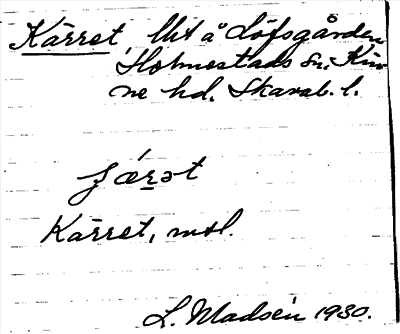 Kärret, lht å Löfsgården
Holmestads sn, Kin-
ne hd. Skarab. l.
Kärret, mtl.
L. Madsén 1930.